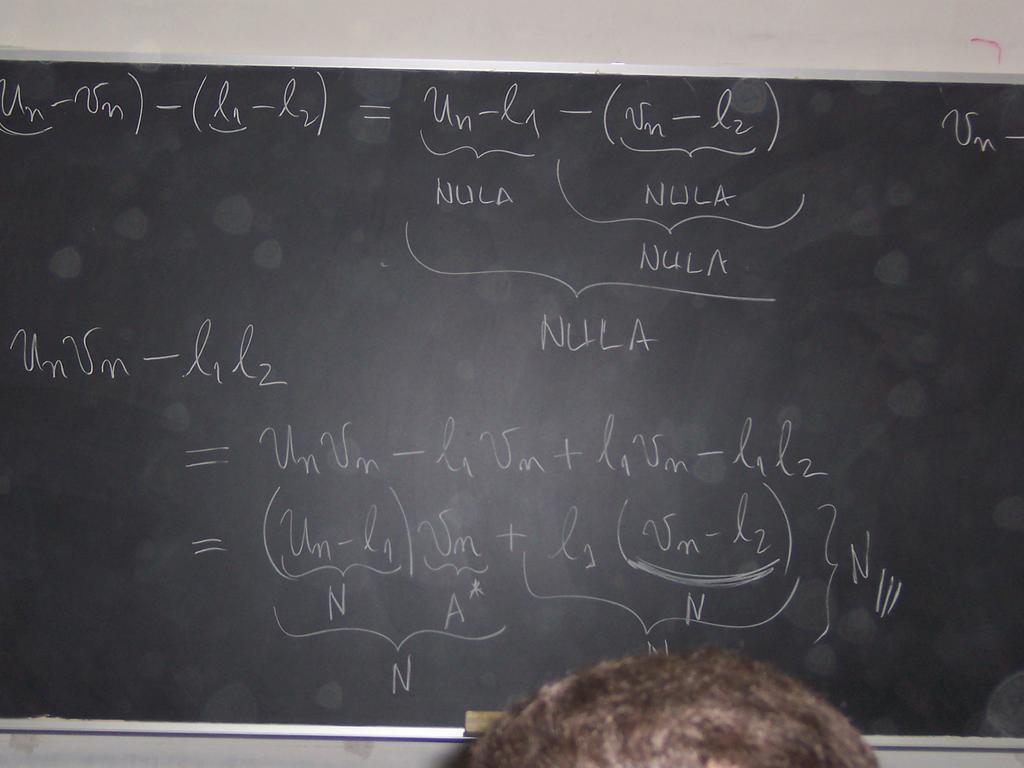 u_n - v_n) - (l_1 - l_2) = u_n - l_1 - (v_n - l_2) v_n -
NULA NULA
NULA
NULA
u_n v_n - l_1 l_2
= u_n v_n - l_1 v_n + l_1 v_n - l_1 l_2
= (u_n - l_1) v_n + l_1 (v_n - l_2) } N ///
N A* N
N N